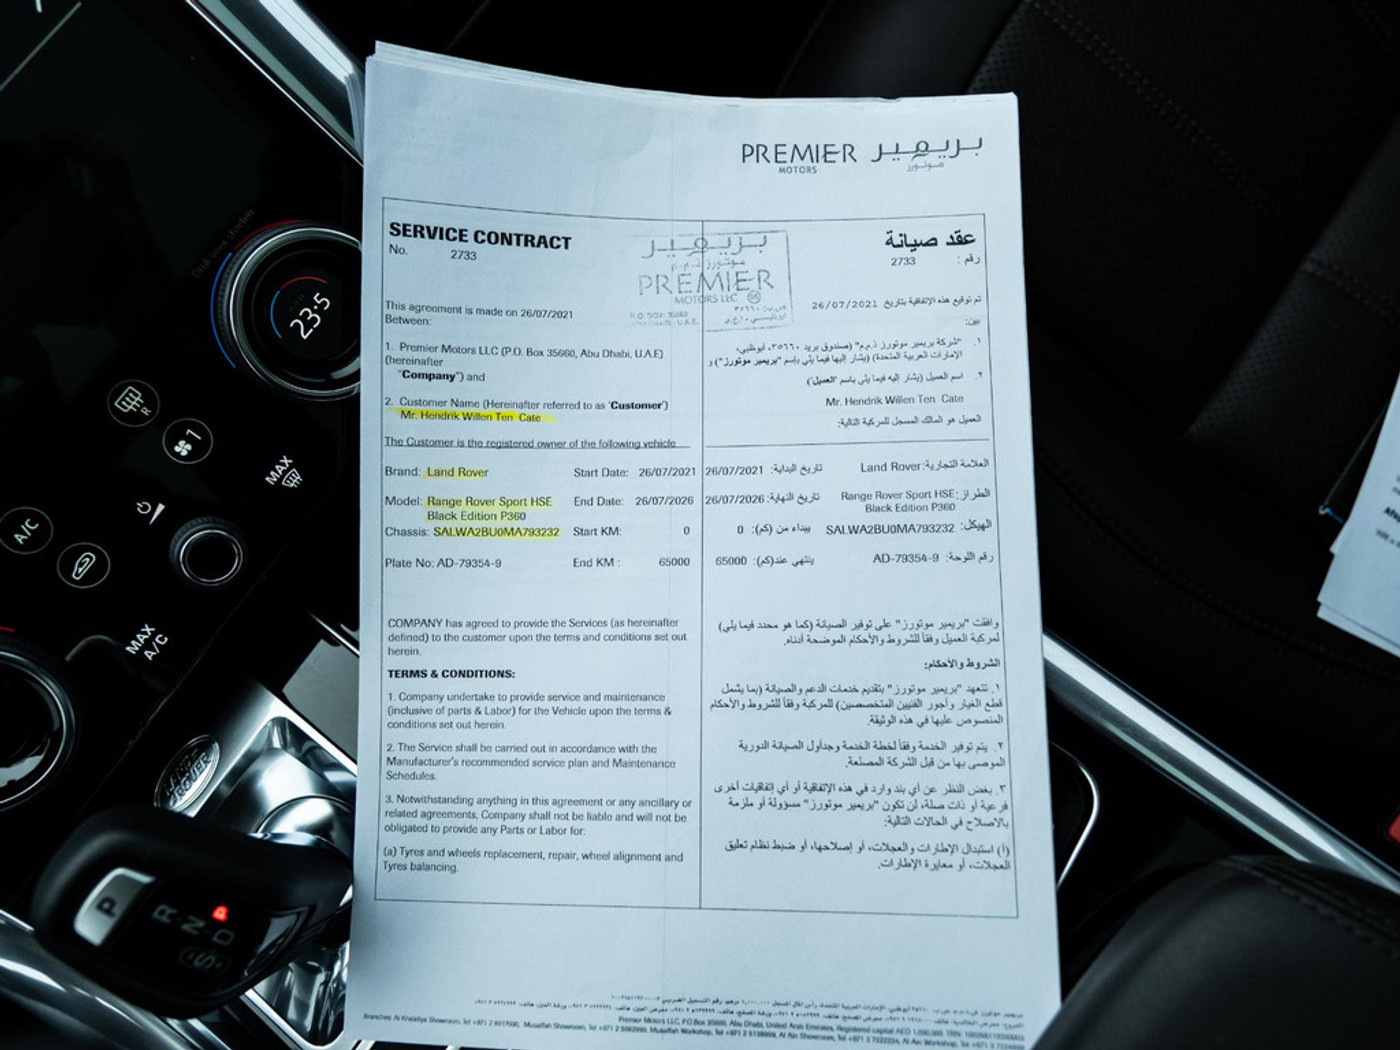 PREMIER
MOTORS
بريمير
موتورز
SERVICE CONTRACT
No. 2733
بريمير
موتورز ذ.م.م
PREMIER
MOTORS LLC
P.O. BOX: 35660
عقد صيانة
رقم : 2733
This agreement is made on 26/07/2021
Between:
1. Premier Motors LLC (P.O. Box 35660, Abu Dhabi, U.A.E)
(hereinafter
"Company") and
2. Customer Name (Hereinafter referred to as 'Customer')
Mr. Hendrik Willen Ten Cate
The Customer is the registered owner of the following vehicle
Brand: Land Rover Start Date: 26/07/2021
Model: Range Rover Sport HSE End Date: 26/07/2026
Black Edition P360
Chassis: SALWA2BU0MA793232 Start KM: 0
Plate No: AD-79354-9 End KM : 65000
COMPANY has agreed to provide the Services (as hereinafter
defined) to the customer upon the terms and conditions set out
herein.
TERMS & CONDITIONS:
1. Company undertake to provide service and maintenance
(inclusive of parts & Labor) for the Vehicle upon the terms &
conditions set out herein.
2. The Service shall be carried out in accordance with the
Manufacturer's recommended service plan and Maintenance
Schedules.
3. Notwithstanding anything in this agreement or any ancillary or
related agreements, Company shall not be liable and will not be
obligated to provide any Parts or Labor for:
(a) Tyres and wheels replacement, repair, wheel alignment and
Tyres balancing.
تم توقيع هذه الإتفاقية بتاريخ 26/07/2021
بين:
١. "شركة بريمير موتورز ذ.م.م" (صندوق بريد ٣٥٦٦٠، ابوظبي،
الإمارات العربية المتحدة) (يشار إليها فيما يلي بإسم "بريمير موتورز") و
٢. اسم العميل (يشار إليه فيما يلي باسم "العميل")
Mr. Hendrik Willen Ten Cate
العميل هو المالك المسجل للمركبة التالية:
العلامة التجارية: Land Rover تاريخ البداية: 26/07/2021
الطراز: Range Rover Sport HSE تاريخ النهاية: 26/07/2026
Black Edition P360
الهيكل: SALWA2BU0MA793232 يبداء من (كم): 0
رقم اللوحة: AD-79354-9 ينتهي عند(كم): 65000
وافقت "بريمير موتورز" على توفير الصيانة (كما هو محدد فيما يلي)
لمركبة العميل وفقاً للشروط والأحكام الموضحة أدناه.
الشروط والأحكام:
١. تتعهد "بريمير موتورز" بتقديم خدمات الدعم والصيانة (بما يشمل
قطع الغيار وأجور الفنيين المتخصصين) للمركبة وفقاً للشروط والأحكام
المنصوص عليها في هذه الوثيقة.
٢. يتم توفير الخدمة وفقاً لخطة الخدمة وجداول الصيانة الدورية
الموصى بها من قبل الشركة المصنعة.
٣. بغض النظر عن أي بند وارد في هذه الإتفاقية أو أي إتفاقيات أخرى
فرعية أو ذات صلة، لن تكون "بريمير موتورز" مسؤولة أو ملزمة
بالاصلاح في الحالات التالية:
(أ) استبدال الإطارات والعجلات، أو إصلاحها، أو ضبط نظام تعليق
العجلات، أو معايرة الإطارات.
Premier Motors LLC, P.O.Box 35660, Abu Dhabi, United Arab Emirates, Registered capital AED
23.5
R
1
MAX
A/C
MAX
A/C
LAND
ROVER
P
R
N
D
S
P